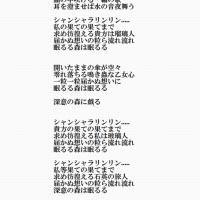 耳を澄ませば水の音夜舞う
シャンシャラリンリン……
私の果ての果てまで
求め彷徨える貴方は瑠璃人
届かぬ想いの粒ら流れ流れ
眠るる森は眠るる
開いたままの傘が空々
零れ落ちる鳴き蟲な乙女心
一粒一粒届かぬ想いに
眠るる森は眠るる
深意の森に戯る
シャンシャラリンリン……
貴方の果ての果てまで
求め彷徨える私は玻璃人
届かぬ想いの粒ら流れ流れ
眠るる森は眠るる
シャンシャラリンリン……
私等果ての果てまで
求め彷徨える石英の旅人
届かぬ想いの粒ら流れ流れ
眠るる森は眠るる